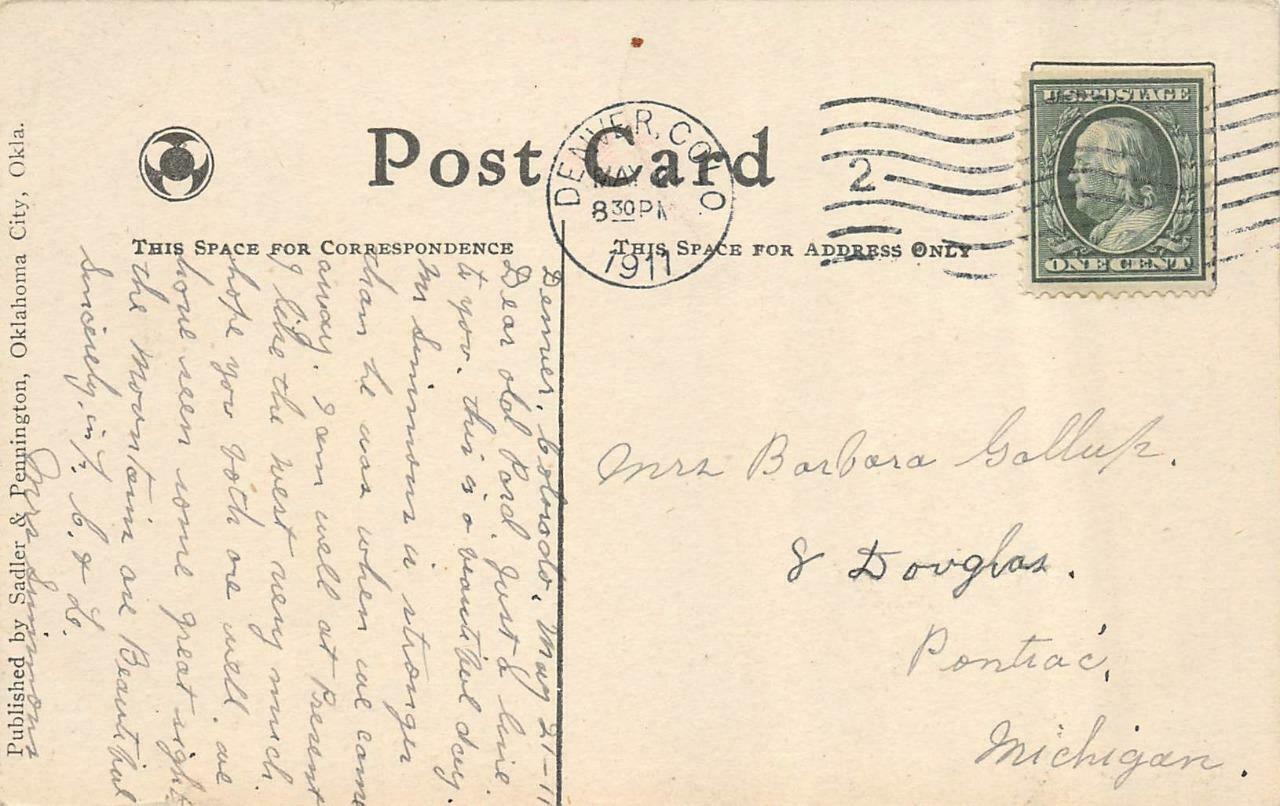 Post Card
DENVER, COLO.
MAY
8 30 PM
1911
2
U.S. POSTAGE
ONE CENT
THIS SPACE FOR CORRESPONDENCE
THIS SPACE FOR ADDRESS ONLY
Denver, Colorado. May 21-11
Dear old Pard. Just a line
to you. this is a beautiful day.
Mr Simmons is stronger
than he was when we came
away. I am well at Present
I like the West very much.
I hope you both are well. we
have seen some great sights
the Mountains are Beautiful
Sincerely, in F. C. & L.
Mrs Simmons
Mrs Barbara Gallup.
8 Douglas.
Pontiac,
Michigan.
Published by Sadler & Pennington, Oklahoma City, Okla.